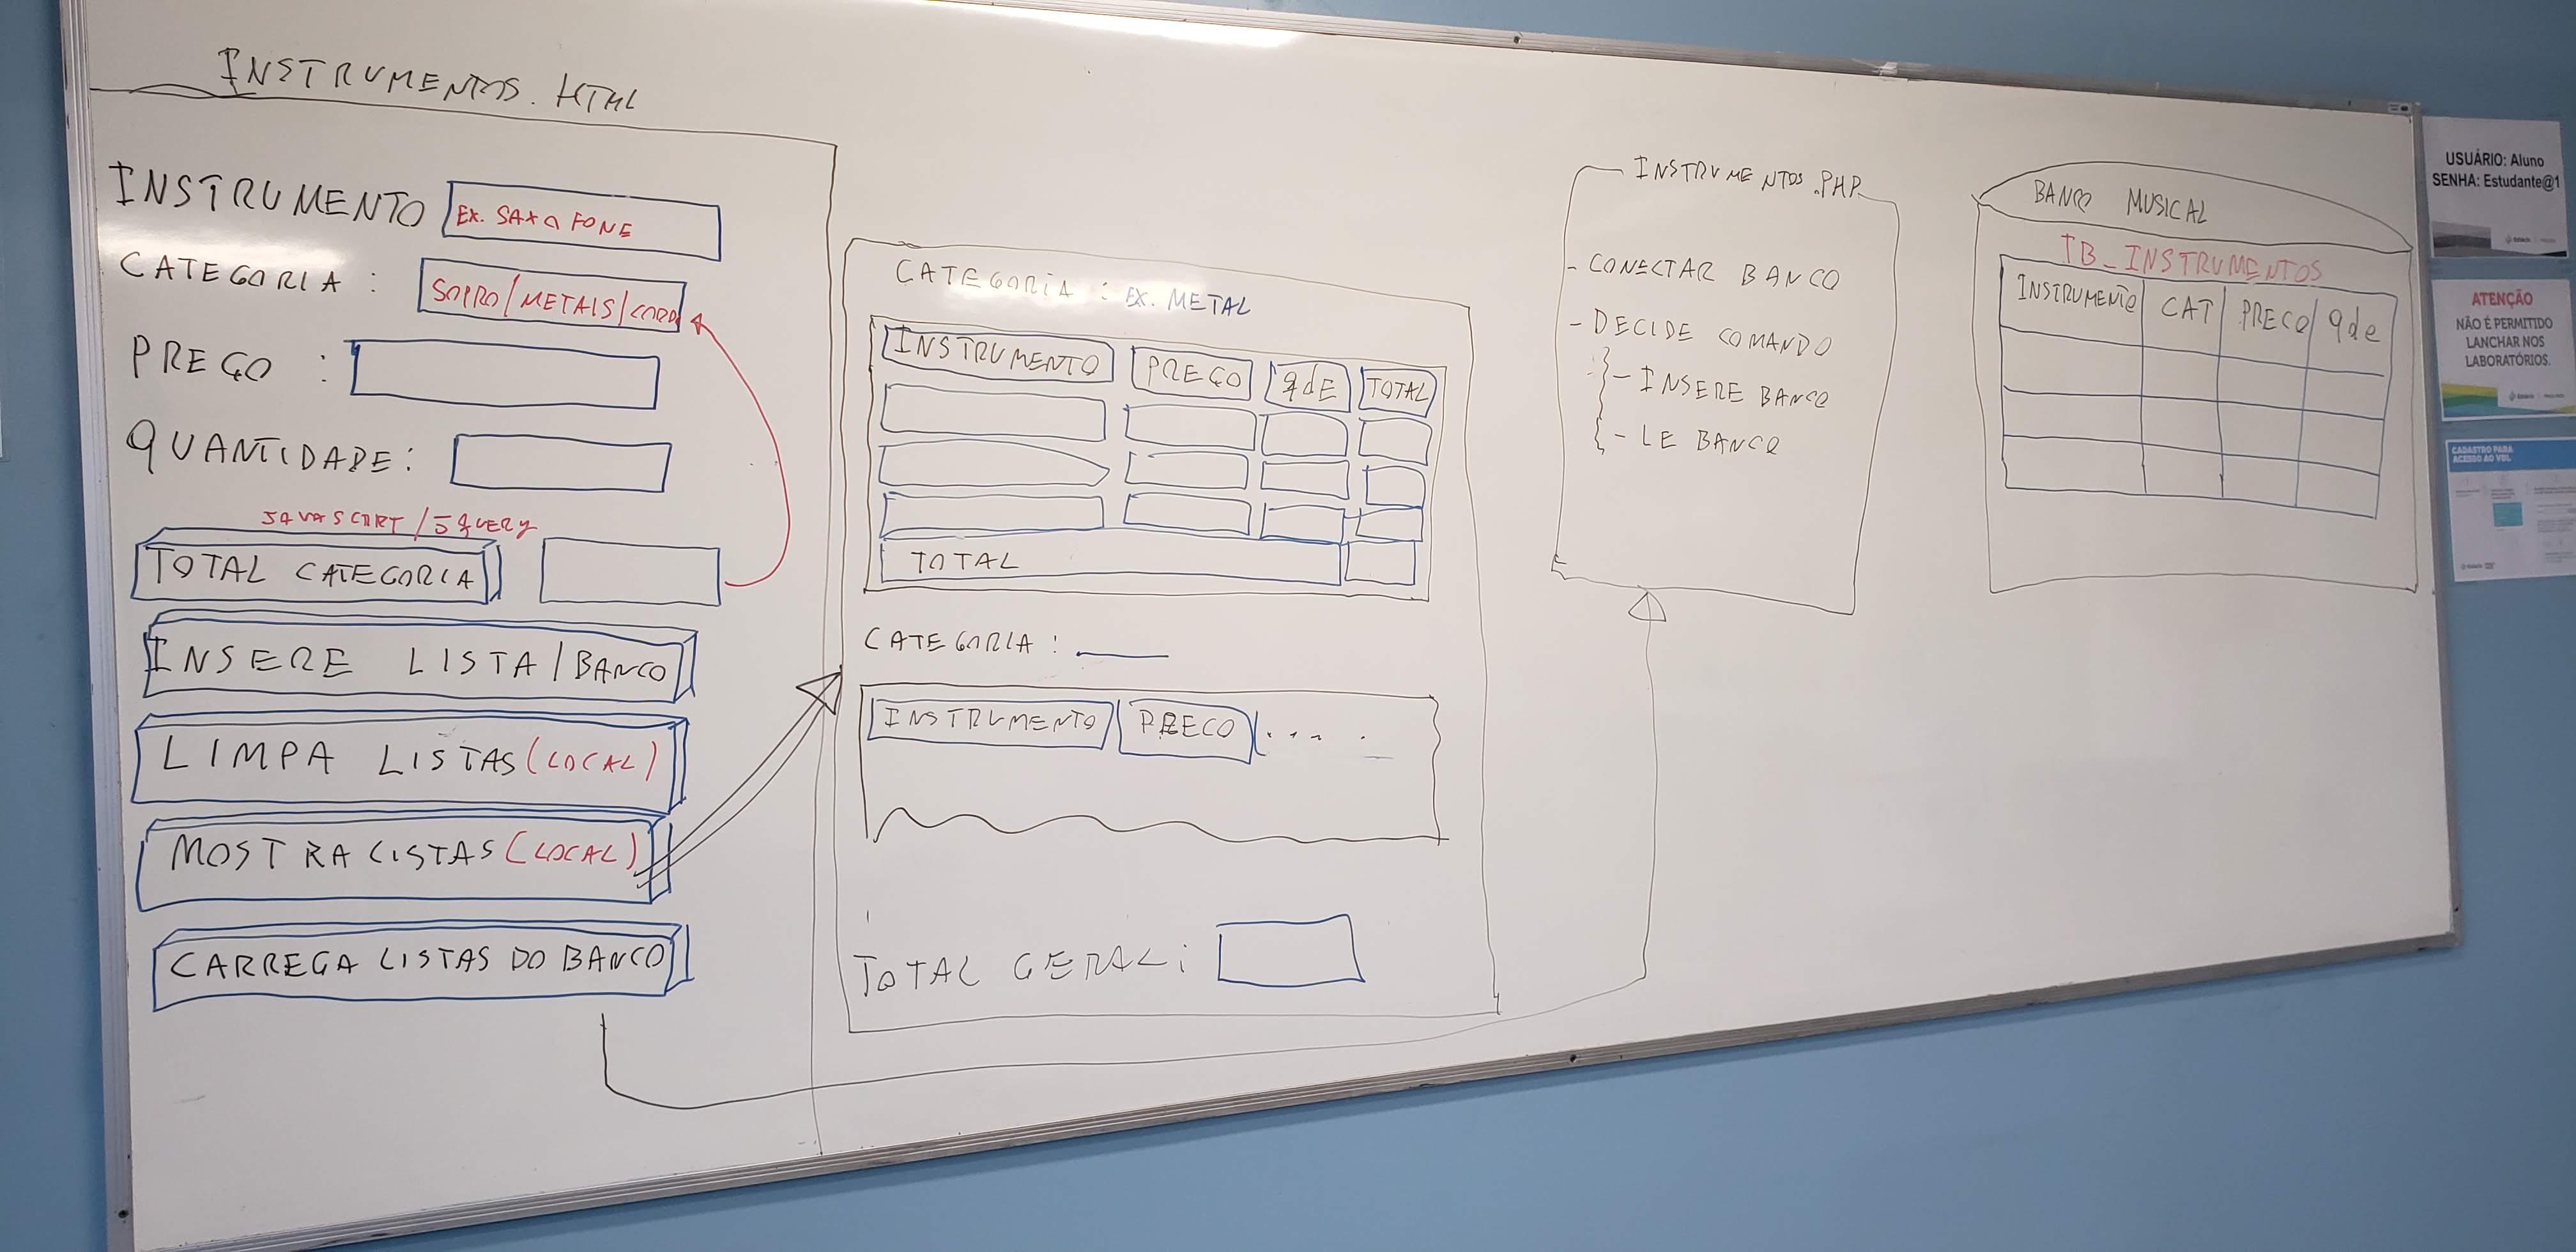 INSTRUMENTOS.HTML
INSTRUMENTO
EX. SAXOFONE
CATEGORIA :
SOPRO/METAIS/CORD
PREÇO :
QUANTIDADE:
JAVASCRIPT/JQUERY
TOTAL CATEGORIA
INSERE LISTA/BANCO
LIMPA LISTAS (LOCAL)
MOSTRA LISTAS (LOCAL)
CARREGA LISTAS DO BANCO
CATEGORIA : EX. METAL
INSTRUMENTO PREÇO QdE TOTAL
TOTAL
CATEGORIA : ____
INSTRUMENTO PREÇO ....
TOTAL GERAL:
INSTRUMENTOS.PHP
- CONECTAR BANCO
- DECIDE COMANDO
- INSERE BANCO
- LE BANCO
BANCO MUSICAL
TB_INSTRUMENTOS
INSTRUMENTO CAT PREÇO Qde
USUÁRIO: Aluno
SENHA: Estudante@1
ATENÇÃO
NÃO É PERMITIDO
LANCHAR NOS
LABORATÓRIOS.
CADASTRO PARA
ACESSO AO VDI.